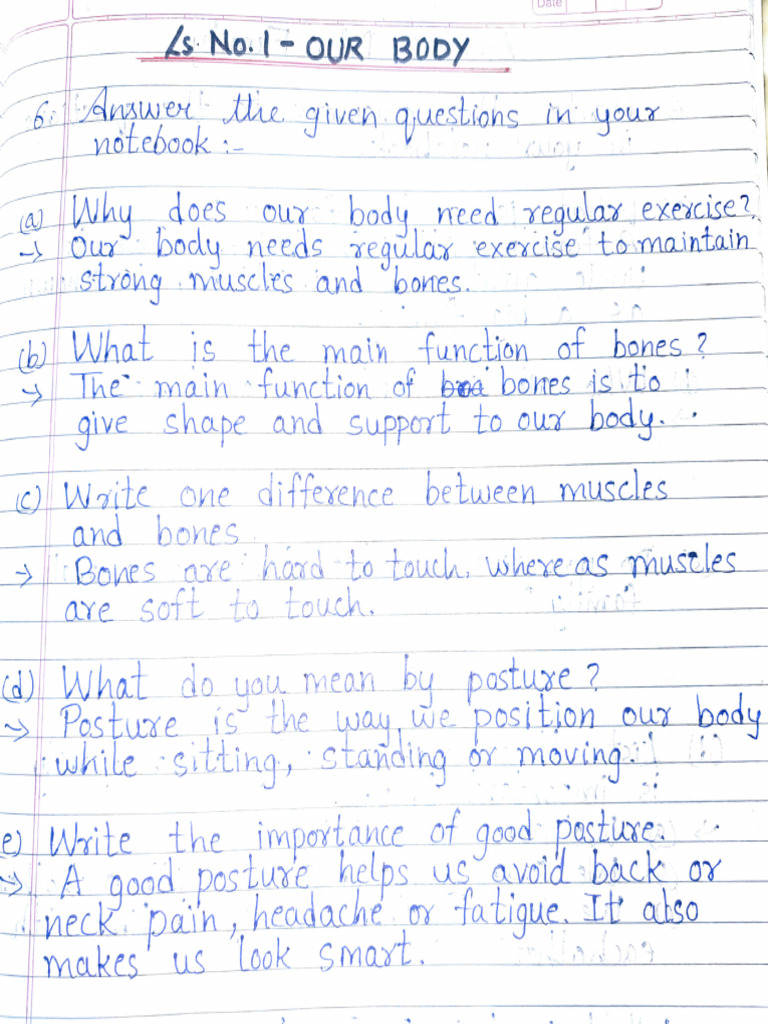 Date
Ls No. 1 - OUR BODY
6. Answer the given questions in your
notebook :-
(a) Why does our body need regular exercise?
→ Our body needs regular exercise to maintain
strong muscles and bones.
(b) What is the main function of bones?
→ The main function of bones is to
give shape and support to our body.
(c) Write one difference between muscles
and bones.
→ Bones are hard to touch, where as muscles
are soft to touch.
(d) What do you mean by posture?
→ Posture is the way we position our body
while sitting, standing or moving.
e) Write the importance of good posture.
→ A good posture helps us avoid back or
neck pain, headache or fatigue. It also
makes us look smart.